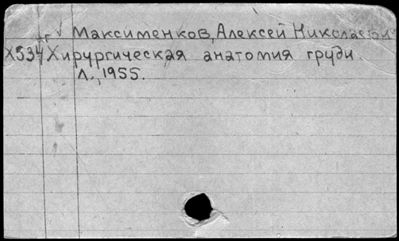 Максименков, Алексей Николаевич
Х534 Хирургическая анатомия груди.
Л., 1955.